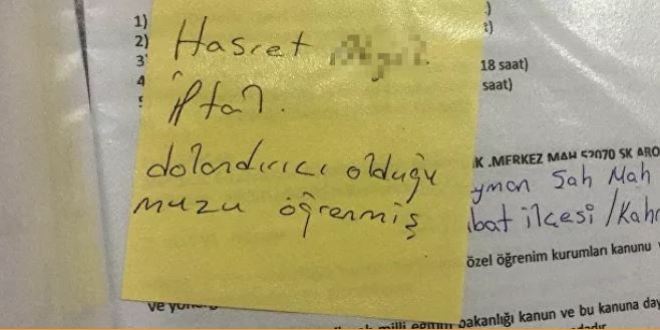 1)
2)
3
4
18 saat)
saat)
Hasret
İptal.
dolandırıcı olduğu
muzu öğrenmiş
K .MERKEZ MAH 52070 SK ARO
yman Şah Mah
bat ilçesi /Kahr
özel öğrenim kurumları kanunu
ve
milli eğitim bakanlığı kanun ve bu kanuna day